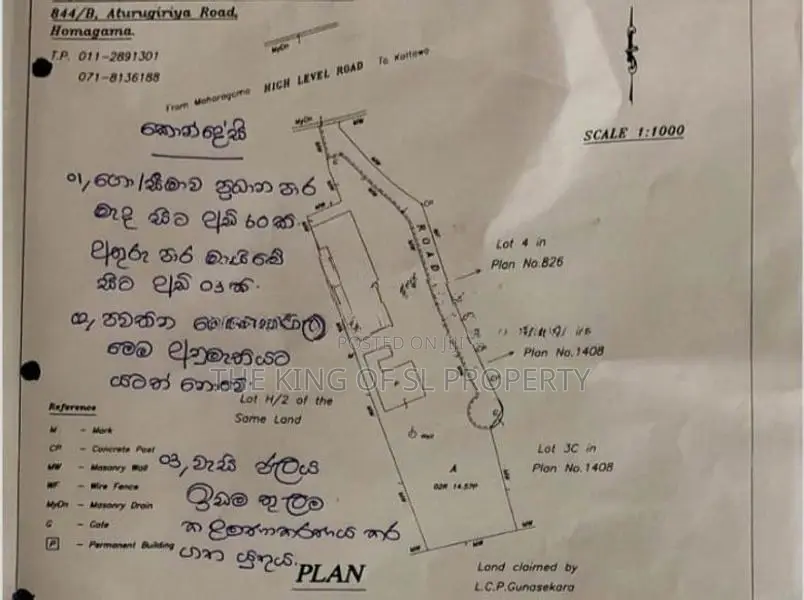 844/B, Aturugiriya Road,
Homagama.
T.P. 011-2891301
071-8136188
MyDn
From Maharagama HIGH LEVEL ROAD To Kottawa
MyDn
MW
SCALE 1:1000
කොන්දේසි
෦1, ගො/සීමාව ප්‍රධාන පාර
මැද සිට අඩි 60 ක
අතුරු පාර මායිමේ
සිට අඩි 03 ක.
02, පවත්න
මෙම අනුමැතියට
යටත් නොවේ.
ROAD
Lot 4 in
Plan No.826
Plan No.1408
POSTED ON JIJI
THE KING OF SL PROPERTY
Lot H/2 of the
Same Land
Reference
M - Mark
CP - Concrete Post
MW - Masonry Wall
WF - Wire Fence
MyDn - Masonry Drain
G - Gate
P - Permanent Building
03, වැසි ජලය
ඉඩම තුලම
කළමනාකරණය කර
ගත යුතුය.
Well
A
02R 14.57P
Lot 3C in
Plan No.1408
MW
MW
MW
PLAN
Land claimed by
L.C.P.Gunasekara